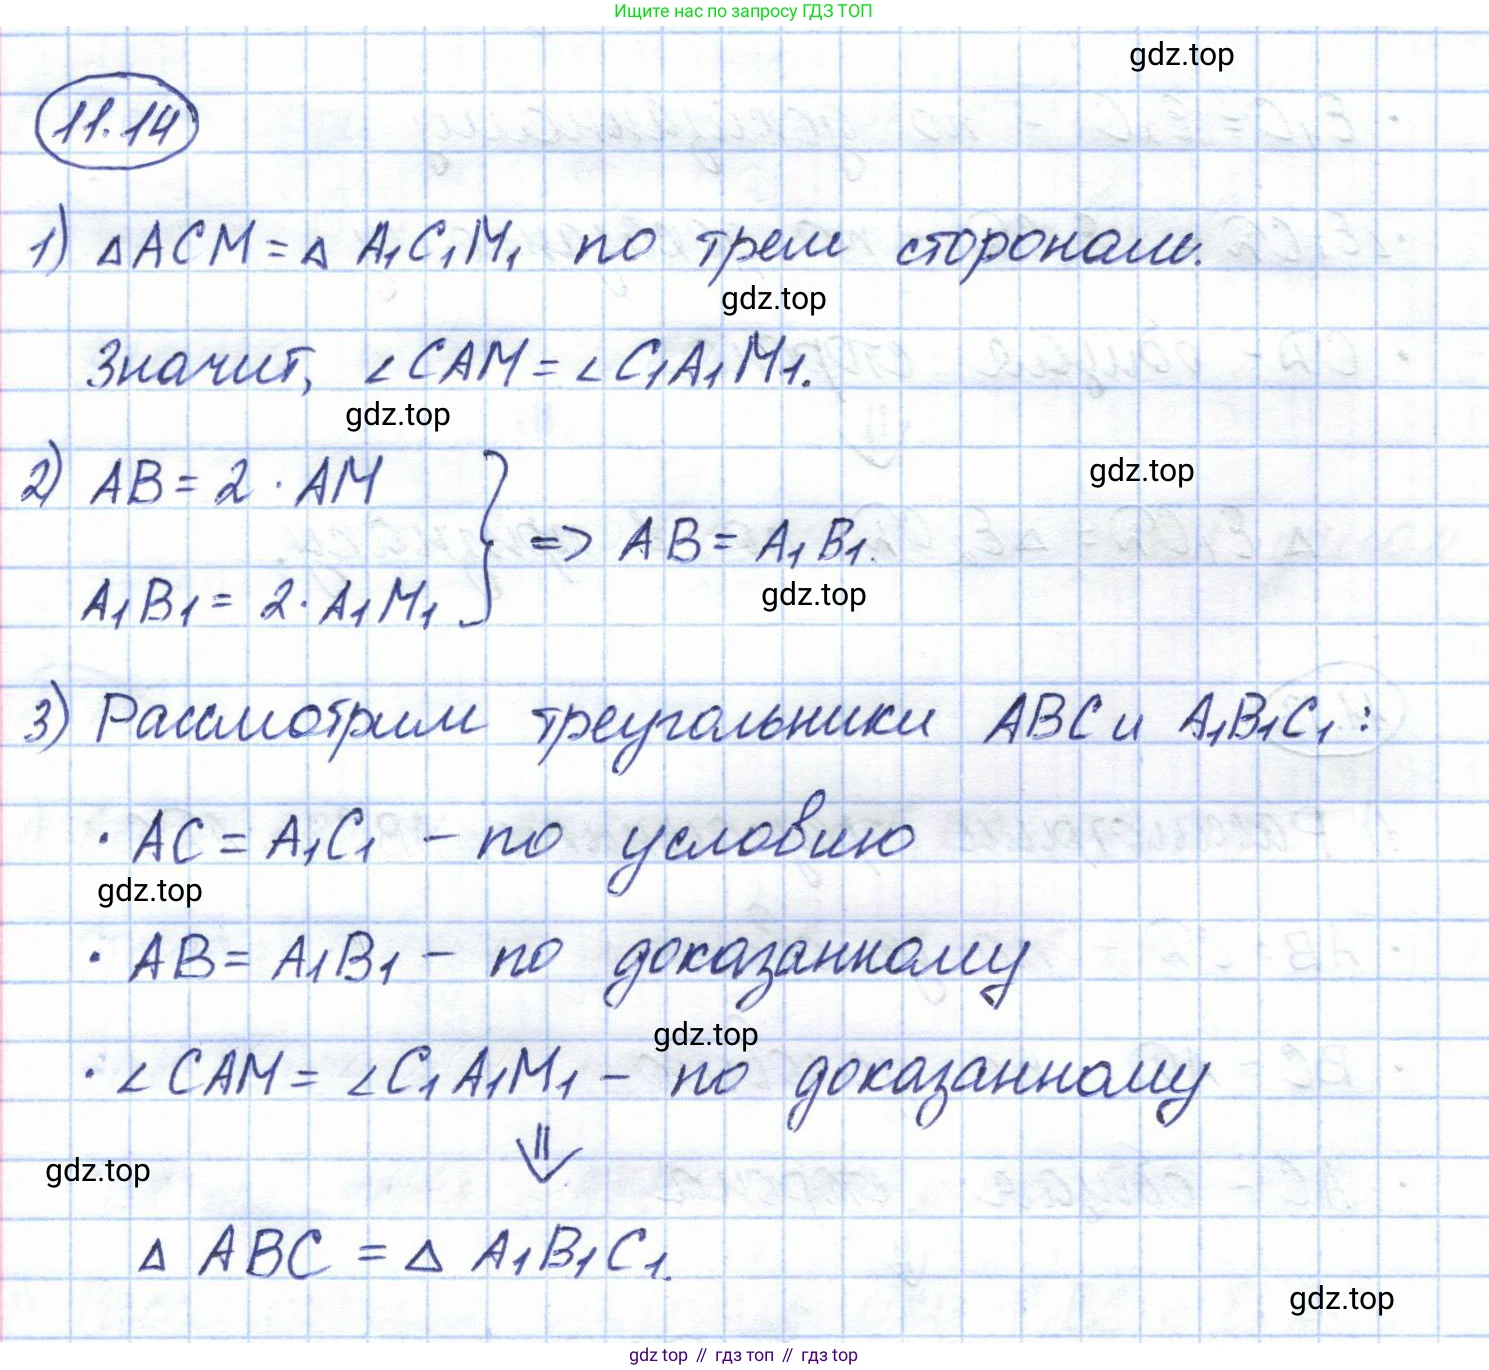 Ищите нас по запросу ГДЗ ТОП
gdz.top
11.14
1) △ACM = △ A₁C₁M₁ по трем сторонам.
gdz.top
Значит, ∠CAM = ∠C₁A₁M₁.
gdz.top
2) AB = 2 · AM
gdz.top
=> AB = A₁B₁.
gdz.top
A₁B₁ = 2 · A₁M₁
3) Рассмотрим треугольники ABC и A₁B₁C₁:
· AC = A₁C₁ – по условию
gdz.top
· AB = A₁B₁ – по доказанному
gdz.top
· ∠CAM = ∠C₁A₁M₁ – по доказанному
⇓
gdz.top
△ ABC = △ A₁B₁C₁.
gdz.top
gdz top // гдз топ // гдз top